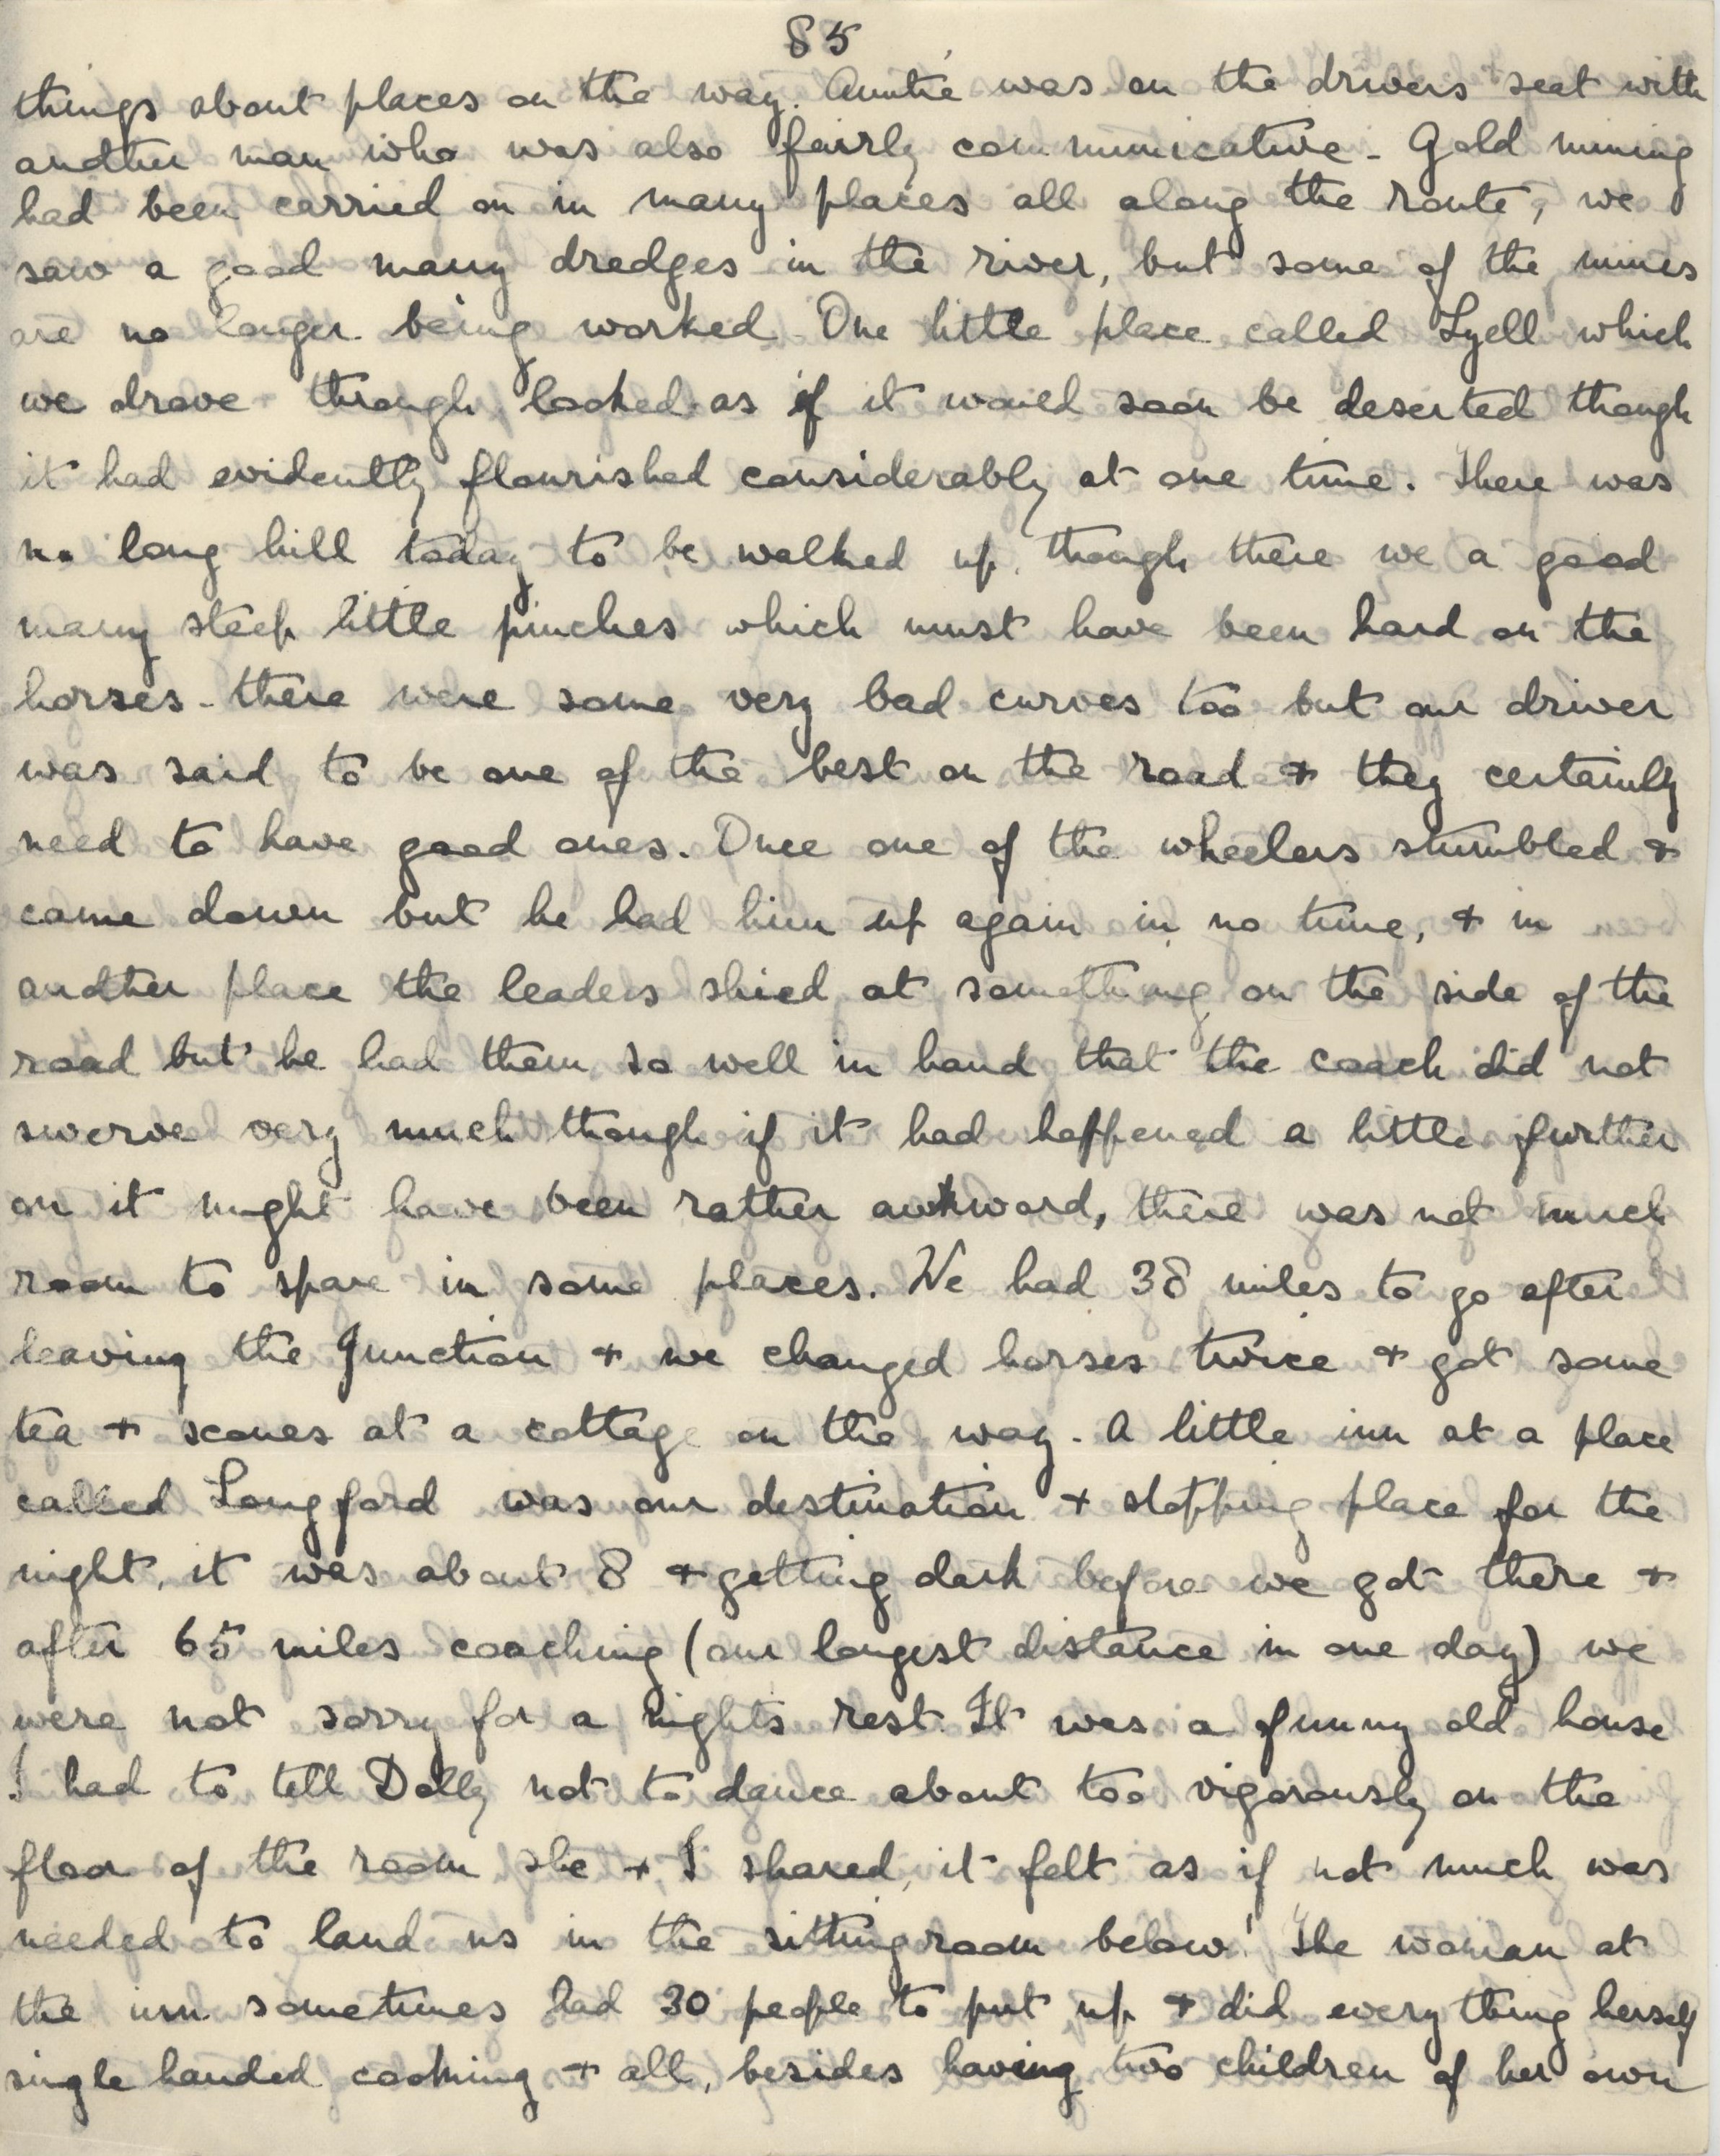 85
things about places on the way. Auntie was on the drivers seat with
another man who was also fairly communicative - Gold mining
had been carried on in many places all along the route, we
saw a good many dredges in the river, but some of the mines
are no longer being worked. One little place called Lyell which
we drove through looked as if it would soon be deserted though
it had evidently flourished considerably at one time. There was
no long hill today to be walked up, though there we a good
many steep little pinches which must have been hard on the
horses - there were some very bad curves too but our driver
was said to be one of the best on the road & they certainly
need to have good ones. Once one of the wheelers stumbled &
came down but he had him up again in no time, & in
another place the leaders shied at something on the side of the
road but he had them so well in hand that the coach did not
swerve very much though if it had happened a little further
on it might have been rather awkward, there was not much
room to spare in some places. We had 38 miles to go after
leaving the Junction & we changed horses twice & got some
tea & scones at a cottage on the way. A little inn at a place
called Longford was our destination & stopping place for the
night, it was about 8 & getting dark before we got there &
after 65 miles coaching (our longest distance in one day) we
were not sorry for a nights rest. It was a funny old house
I had to tell Dolly not to dance about too vigorously on the
floor of the room she & I shared, it felt as if not much was
needed to land us in the sitting room below! The woman at
the inn sometimes had 30 people to put up & did every thing herself
single handed cooking & all, besides having two children of her own